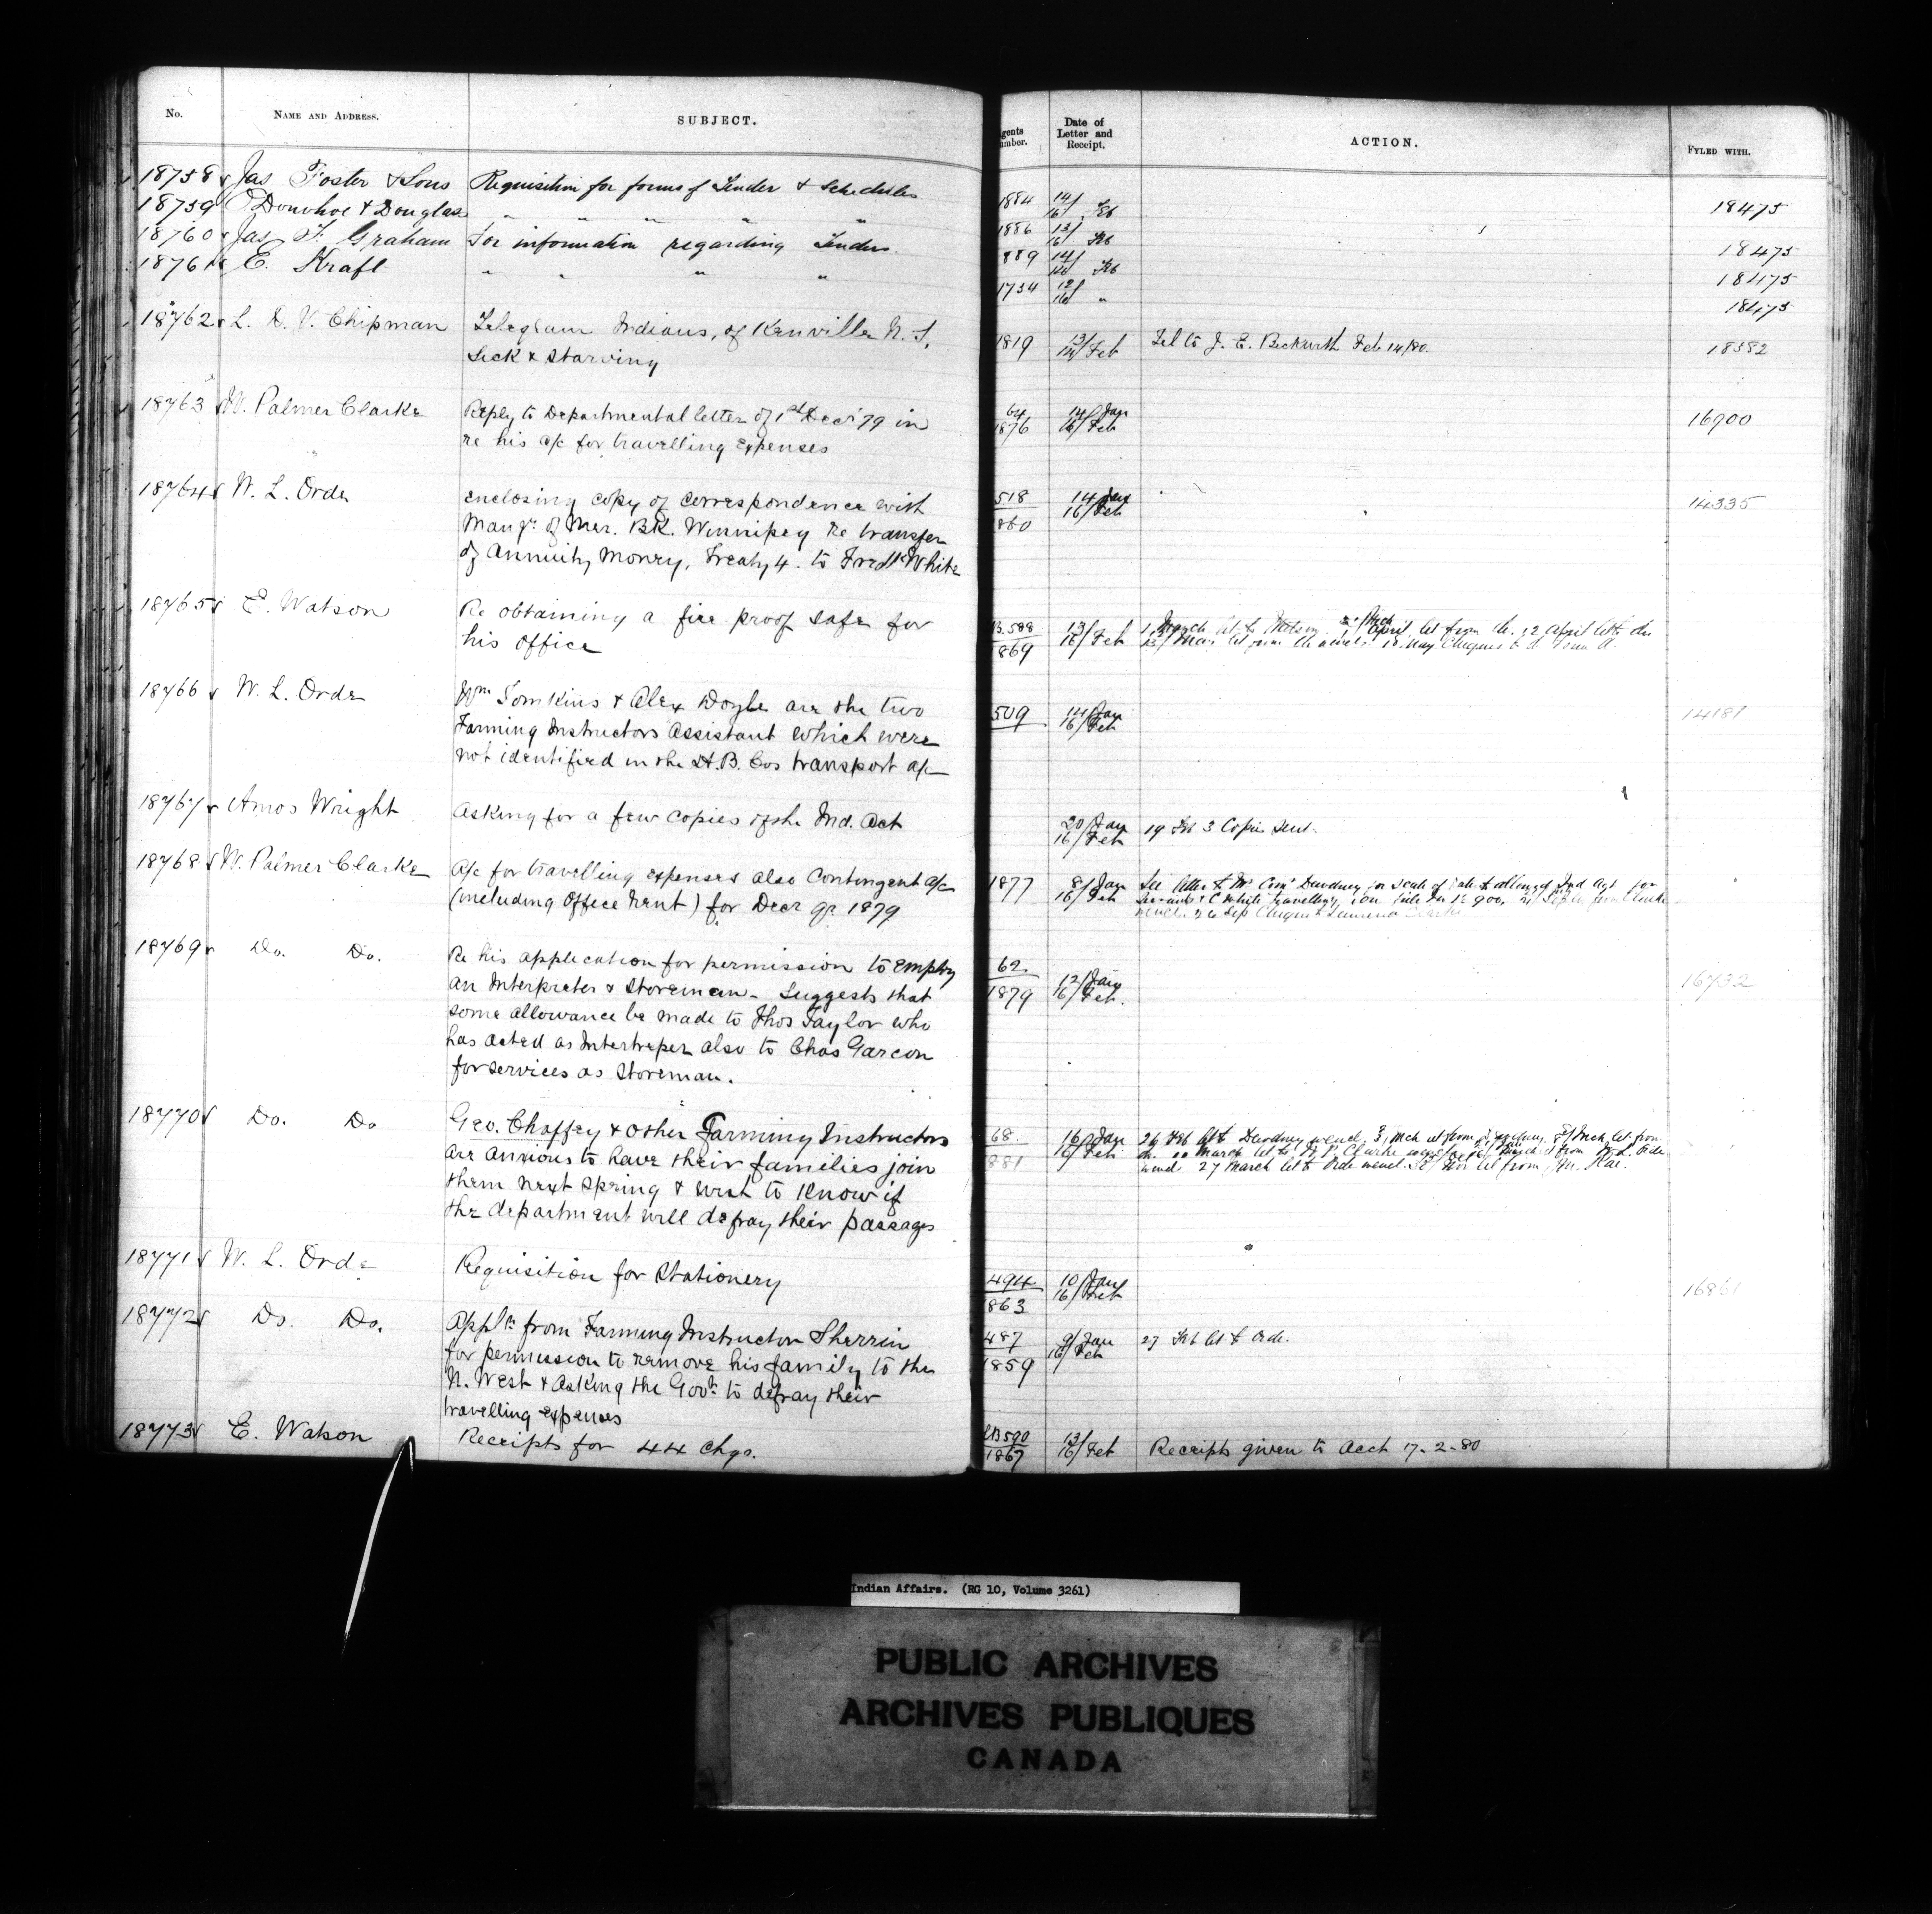 No. NAME AND ADDRESS. SUBJECT.
18758 Jas Foster & Sons Requisition for forms of Tender & Schedules
18759 O'Donohoe & Douglas " " " " "
18760 Jas. F. Graham For information regarding Tenders.
18761 E. Kraft " " " "
18762 L. D. V. Chipman Telegram Indians, of Kenville N. S,
Sick & Starving
18763 W. Palmer Clarke Reply to Departmental letter of 1st Decr 79 in
re his a/c for travelling expenses
18764 W. L. Orde enclosing copy of correspondence with
Mangr. of Mer. BK. Winnipeg re transfer
of Annuity Money, Treaty 4. to Fredk White
18765 E. Watson Re obtaining a fire proof safe for
his office
18766 W. L. Orde Wm Tomkins & Alex Doyle are the two
Farming Instructors Assistant which were
not identified in the H.B. Cos transport a/c
18767 Amos Wright Asking for a few copies of the Ind. Act
18768 W. Palmer Clarke A/c for travelling expenses also Contingent a/c
(including Office Rent) for Decr qr 1879
18769 Do. Do. Re his application for permission to employ
an Interpreter & Storeman - Suggests that
some allowance be made to Thos Taylor who
has acted as Interpreter also to Chas Garcon
for services as Storeman.
18770 Do. Do Geo. Chaffey & other Farming Instructors
are anxious to have their families join
them next Spring & wish to know if
the department will defray their passages
18771 W. L. Orde Requisition for Stationery
18772 Do. Do. Appln from Farming Instructor Sherrin
for permission to remove his family to the
N. West & asking the Govt. to defray their
travelling expenses
18773 E. Watson Receipts for 44 chqs.
gents umber. Date of Letter and Receipt. ACTION. FYLED WITH.
1884 14/16 Feb 18475
1886 13/16 Feb 18475
889 14/16 Feb 18475
1734 12/16 " 18475
1819 13/14 Feb Tel to J. E. Beckwith Feb 14/80. 18382
64 1876 14/Jan 16/Feb 16900
518 1860 14 Jan 16/Feb 14335
B.588 1869 13/16 Feb
509 14/Jan 16/Feb 14181
20/Jan 16/Feb 19 Feb 3 Copies sent.
1877 8/Jan 16/Feb
62 1879 12/Jan 16/Feb. 16732
68 881 16/Jan 16/Feb
494 1863 10/Jan 16/Feb 16861
487 1859 9/Jan 16/Feb 27 Feb let to Orde.
B590 1867 13/16/Feb Receipts given to Acct 17-2-80
Indian Affairs. (RG 10, Volume 3261)
PUBLIC ARCHIVES
ARCHIVES PUBLIQUES
CANADA